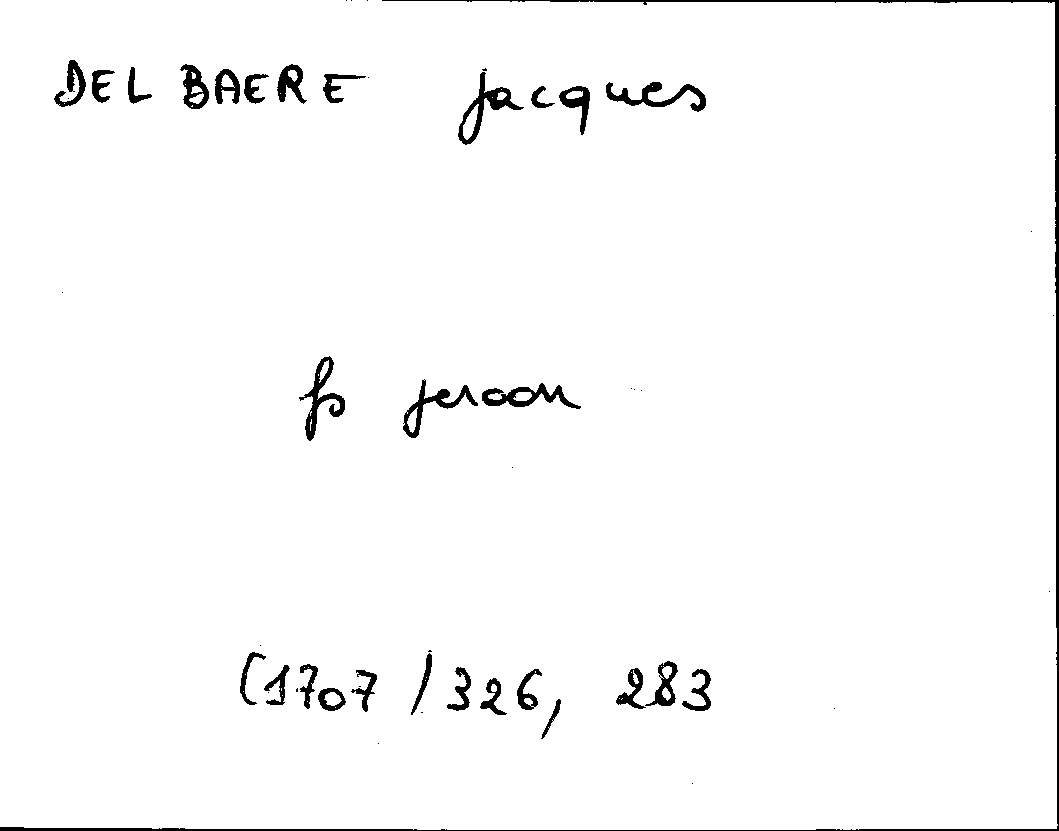 DEL BAERE Jacques
fs Jeroon
(1707 / 326, 283